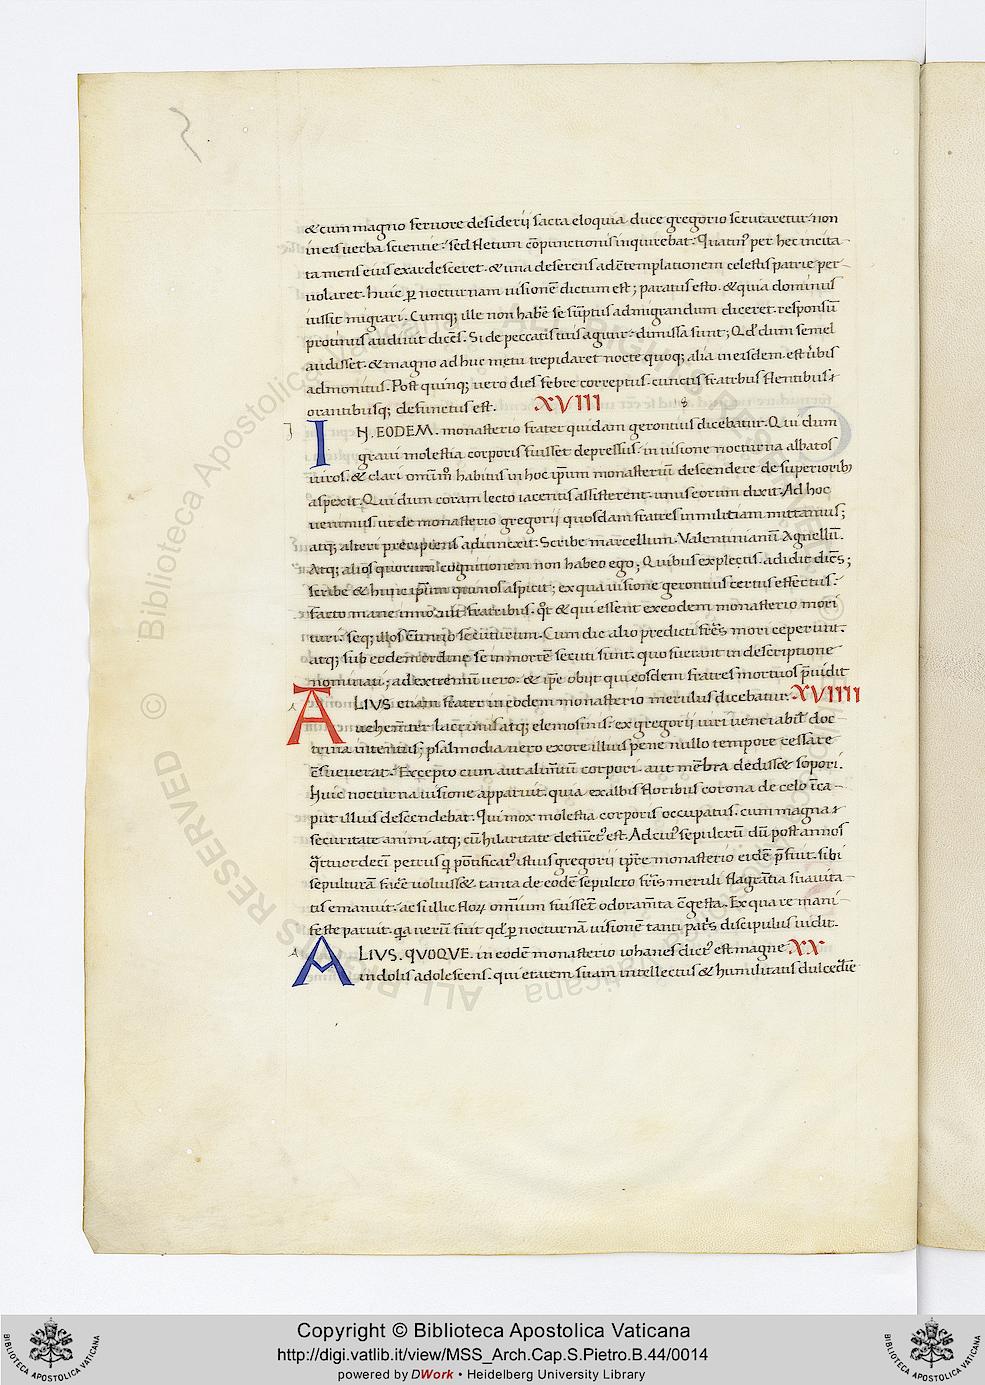 & cum magno feruore desiderij sacra eloquia duce gregorio scrutaretur. non
in eis uerba scientie. sed fletum cōpunctionis inquirebat. Quatin' per hec incita
ta mens eius exardesceret. & ima deserens ad cōtemplationem celestis patrie per
uolaret. Huic p nocturnam uisionē dictum est; paratus esto. & quia dominus
iussit migrari. Cumq; ille non habē se sūptus ad migrandum diceret. responsū
protinus audiuit dicēs. Si de peccatis tuis agitur. dimissa sunt; Qd' dum semel
audisset. & magno adhuc metu trepidaret nocte quoq; alia in eisdem est ūbis
admonitus. Post quinq; uero dies febre correptus. cunctis fratribus flentibus
orantibusq; defunctus est. XVIII
IN. EODEM. monasterio frater quidam gerontius dicebatur. Qui dum
graui molestia corporis fuisset depressus. in uisione nocturna albatos
uiros. & clari omīm̄ habitus in hoc ipsum monasteriū descendere de superiorib
aspexit. Qui dum coram lecto iacentis assisterent. unus eorum dixit. Ad hoc
uenimus ut de monasterio gregorij quosdam fratres in militiam mittamus;
atq; alteri precipiens adiunxit. Scribe marcellum. Valentinianū Agnellū.
Atq; alios quorum cognitionem non habeo ego; Quibus expletis. adidit dicēs;
scribe & hunc ip̄um qui nos aspicit; ex qua uisione gerontius certus effectus.
facto mane fratribus. & qui essent ex eodem monasterio mori
turi. seq; illos secuturum. Cum die alio predicti fr̄es mori ceperunt.
atq; sub eodem ordine se in mortē secuti sunt. quo fuerant in descriptione
nominati; ad extremū uero. & ip̄e obijt qui eosdem fratres morituos p̄uidit
ALIVS etiam frater in eodem monasterio merulus dicebatur. XVIIII
uehemēter lacrimis atq; elemosinis. ex gregorij uiri uenerabil' doc
trina intentus; psalmodia uero ex ore illius pene nullo tempore cessare
cōsueuerat. Excepto cum aut alimētū corpori. aut mēbra dediss& sopori.
Huic nocturna uisione apparuit. quia ex albis floribus corona de celo ī ca
put illius descendebat. Qui mox molestia corporis occupatus. cum magna
securitate animi. atq; cū hilaritate defunct' est. Ad cui' sepulcrū dū post annos
petrus q pōtificat' istius gregorij monasterio eidē p̄fuit. sibi
sepulturā facē uoluiss& tanta de eodē sepulcro fr̄is meruli flagrātia suauita
tis emanuit. ac si illic flor omīum fuissēt odoramēta cōgesta. Ex qua re mani
feste paruit. qa uerū fuit qd' p nocturnā uisionē tanti patris discipulus uidit.
ALIVS. QVOQVE. in eodē monasterio iohanes dict' est magne XX
indolis adolescens. qui etatem suam intellectus & humilitatis dulcedīe
Copyright © Biblioteca Apostolica Vaticana
http://digi.vatlib.it/view/MSS_Arch.Cap.S.Pietro.B.44/0014
powered by DWork • Heidelberg University Library
© Biblioteca Apostolica Vaticana ALL RIGHTS RESERVED
BIBLIOTECA APOSTOLICA VATICANA
BIBLIOTECA APOSTOLICA VATICANA